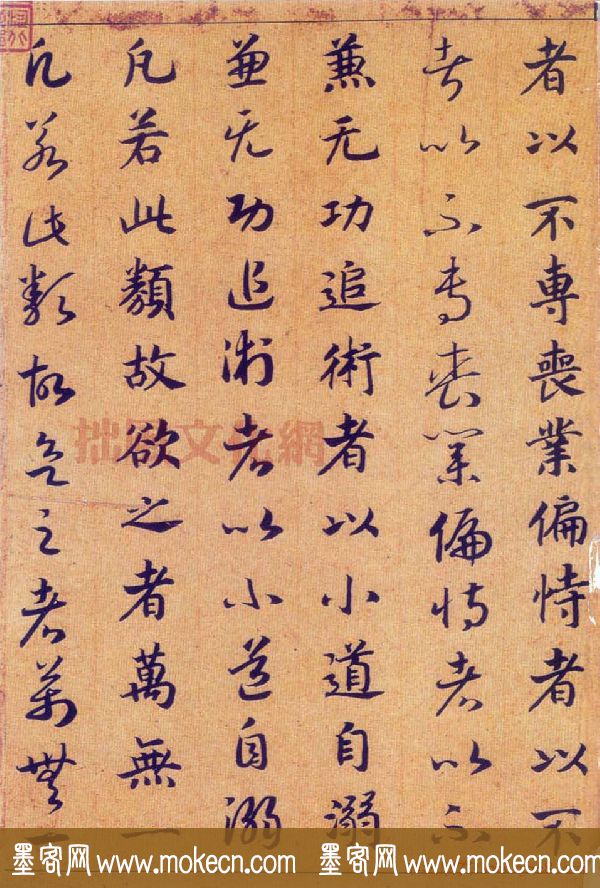 者以不專喪業偏恃者以不
者以不專喪業偏恃者以不
兼无功追術者以小道自溺
兼无功追術者以小道自溺
凡若此類故欲之者萬無一
凡若此類故欲之者萬無一
拙文化網
墨客网 www.mokecn.com 墨客网 www.mokecn.com